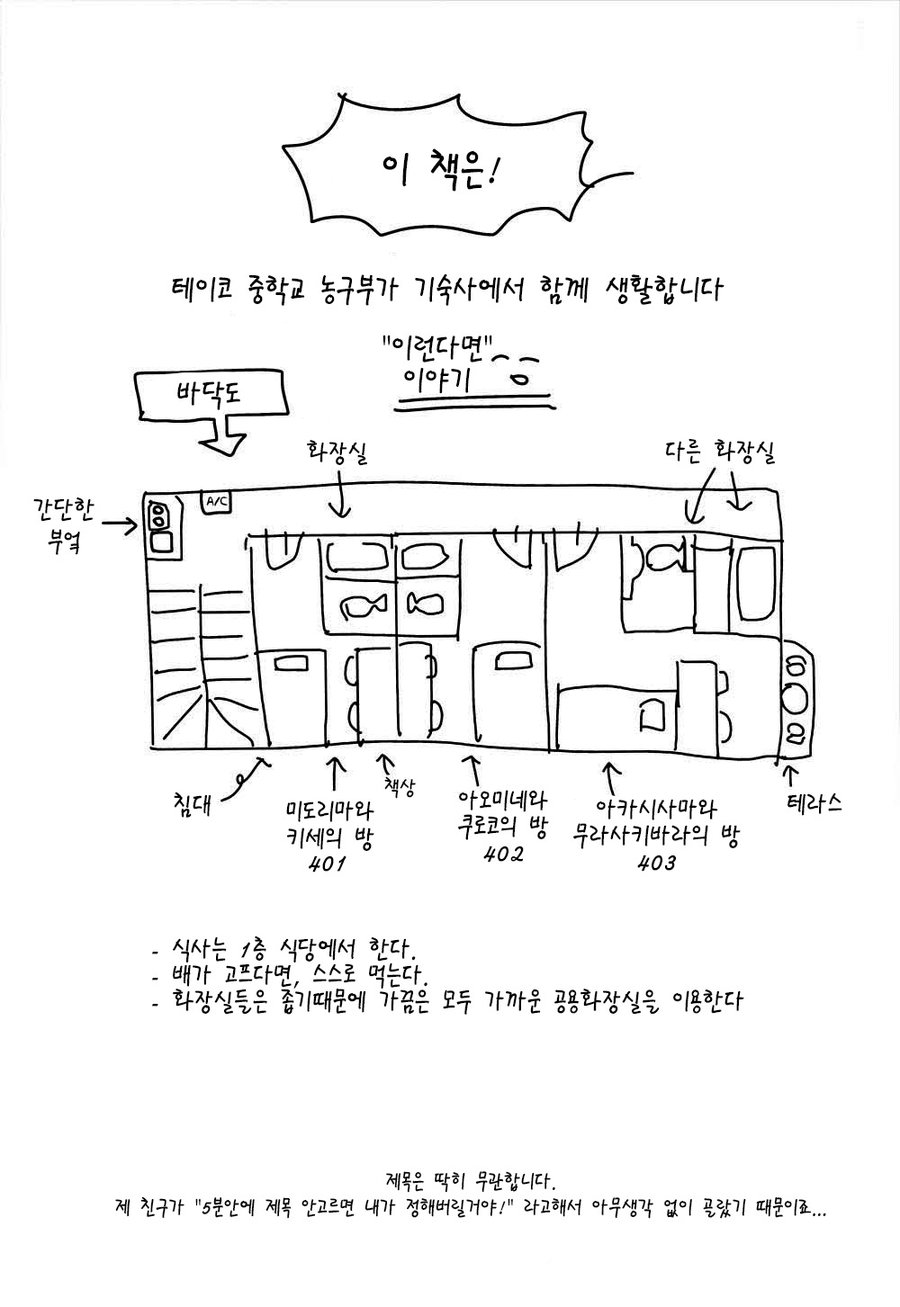 이 책은!
테이코 중학교 농구부가 기숙사에서 함께 생활합니다
"이런다면"
이야기
바닥도
화장실
다른 화장실
간단한
부엌
A/C
침대
미도리마와
키세의 방
401
책상
아오미네와
쿠로코의 방
402
아카시사마와
무라사키바라의 방
403
테라스
- 식사는 1층 식당에서 한다.
- 배가 고프다면, 스스로 먹는다.
- 화장실들은 좁기때문에 가끔은 모두 가까운 공용화장실을 이용한다
제목은 딱히 무관합니다.
제 친구가 "5분안에 제목 안고르면 내가 정해버릴거야!" 라고해서 아무생각 없이 골랐기 때문이죠...